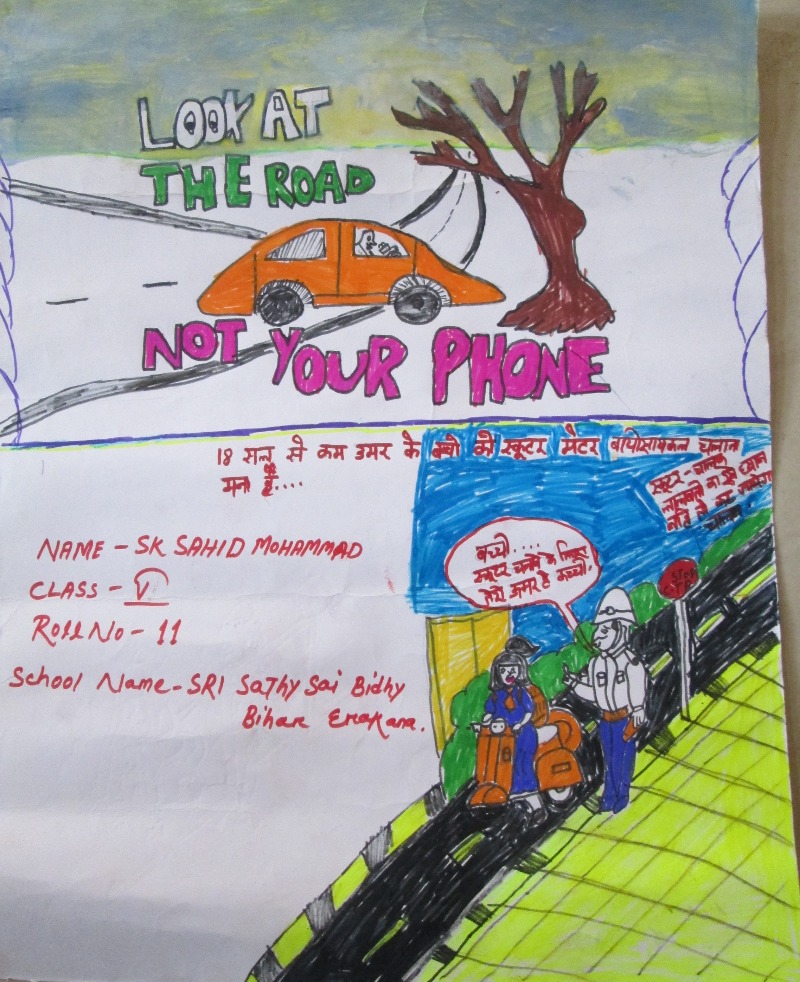 LOOK AT
THE ROAD
NOT YOUR PHONE
18 साल से कम उमर के बच्चो को स्कूटर मैटर चलान
मना है....
NAME - SK SAHID MOHAMMAD
CLASS - V
ROLL NO - 11
School Name - SRI Sathy Sai Bidhy
Bihar Erakana.
स्कूटर - चालक
बच्चो....
स्कूटर चलने के
तेरी उमर है कच्ची.
STOP